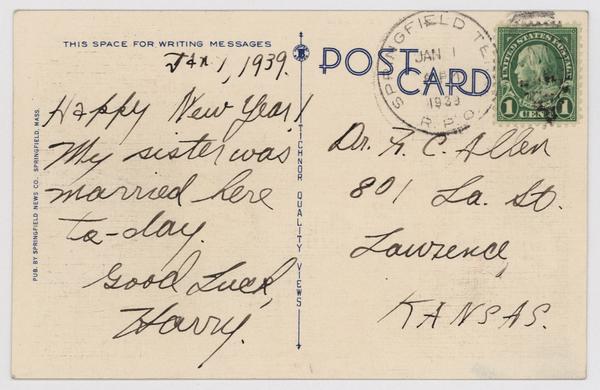 THIS SPACE FOR WRITING MESSAGES
Jan 1, 1939.
Happy New Year!
My sister was
married here
to-day.
Good Luck,
Harry.
PUB. BY SPRINGFIELD NEWS CO., SPRINGFIELD, MASS.
TICHNOR QUALITY VIEWS
POST
CARD
SPRINGFIELD
JAN 1
1939
R.P.O.
UNITED STATES POSTAGE
1 CENT 1
Dr. F. C. Allen
801 La. St.
Lawrence,
KANSAS.